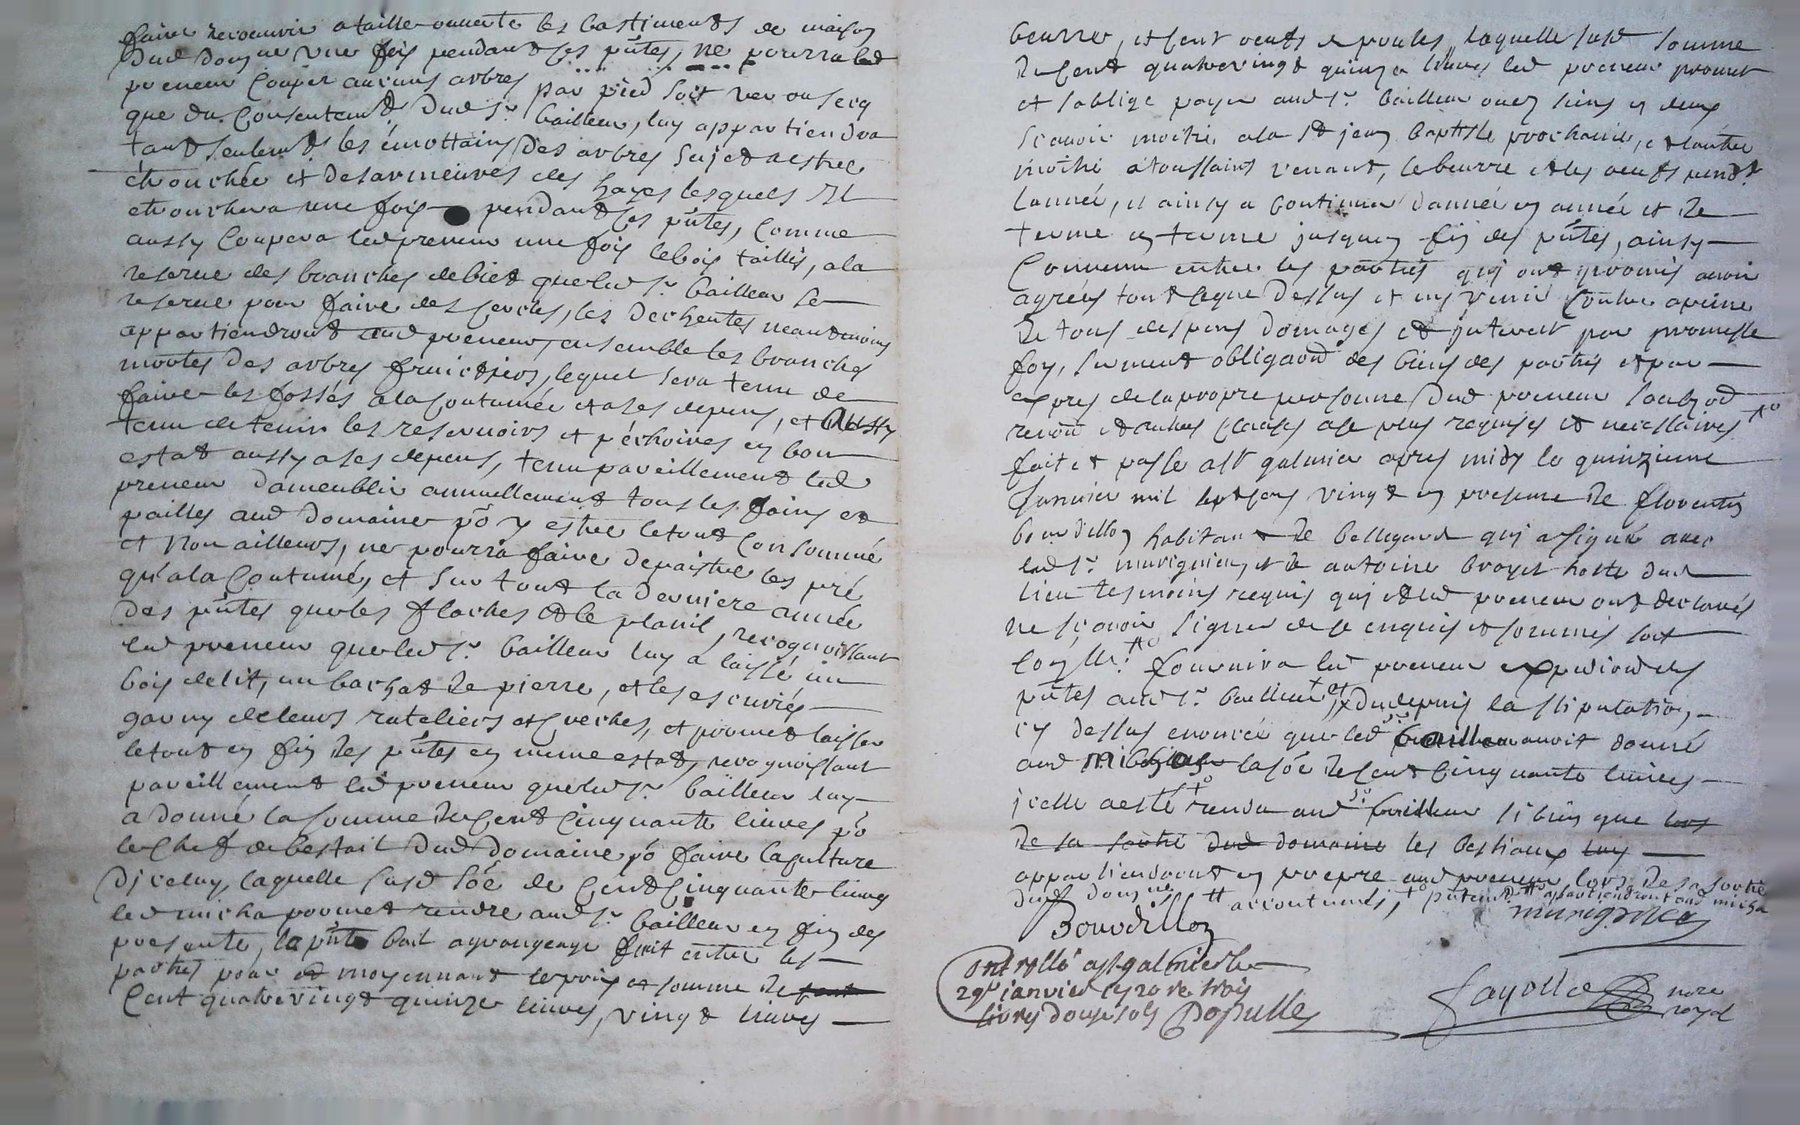 faire recouvrir a taille ouverte les bastiments de maison
dud domne une fois pendant ses pntes, ne pourra led
preneur couper aucuns arbres par pied soit ver ou secq
que du consentemt dud sr bailleur, luy appartiendra
tant seulemt les émottains des arbres sujet a estre
étronchée et des armeures des hayes lesquels Il
étronchera une fois pendant ses pntes, comme
aussy coupera led preneur une fois le bois taillis, a la
reserve des branches de biet que led sr bailleur se
reserve pour faire des cercles, les décheutes neantmoins
appartiendront aud preneur, ensemble les branches
mortes des arbres fruictiers, lequel sera tenu de
faire les fossés a la coutumée et a ses depens, et aussy
tenu de tenir les reservoirs et péchoires en bon
estat aussy a ses depens, tenu pareillement led
preneur d'ameublir annuellement tous les foins et
pailles aud domaine po y estre le tout consommé
et non ailleurs, ne pourra faire depaistre les pré
qu'a la coutumé, et sur tout la derniere année
des pntes que les flaches et le planil, recognoissant
led preneur que led sr bailleur luy a laissé un
bois de lit, un bachat de pierre, et les escuries
garny de leurs rateliers et creches, et promet laisser
le tout en fin des pntes en meme estat, recognoissant
pareillement led preneur que led sr bailleur luy
a donné la somme de cent cinquante livres po
le chef de bestail dud domaine po faire la culture
d'iceluy, laquelle susd soe de cent cinquante livres
led micha promet rendre aud sr bailleur en fin des
presente, le pnt bail a grangeage fait entre les
parties pour et moyennant le prix et somme de
cent quatre vingt quinze livres, vingt livres
beurre, et cent oeufs de poules, laquelle susd somme
de cent quatre vingt quinze livres led preneur promet
et s'oblige payer aud sr bailleur ou es siens en deux
scavoir moitié a la st jean baptiste prochaine, et l'autre
moitié a toussaints venant, le beurre et les oeufs pendt
l'année, et ainsy a continuer d'année en année et de
terme en terme jusques fin des pntes, ainsy
convenu entre les parties qui ont promis avoir
agrées tout ce que dessus et n'y venir contre a peine
de tous despens domages et interest par promesse
foy, serment obligaon des biens des parties et par
expres de la propre personne dud preneur
renon et autres clauses a ce plus requises et necessaires
fait et passe a St galmier apres midy le quinzieme
Janvier mil sept cens vingt en presence de florentin
bourdillon habitant de bellegarde qui a signé avec
led sr murignieu, et de antoine broyet hoste dud
lieu tesmoins requis qui et led preneur ont declarés
ne scavoir signer de ce enquis et sommés soit
fournira led preneur expedion des
pntes aud sr bailleur, et du depuis la stipulation,
cy dessus enoncée que led sr bailleur avoit donné
aud micha la soe de cent cinquante livres
icelle a esté rendu aud sr bailleur si bien que lors
de sa sortie dud domaine les bestiaux luy
appartiendront en propre aud preneur lors de sa sortie
dud domne accoutumés, appartiendront aud micha
Bourdillon
murignieu
Controllé a st galmier le
29e janvier 1720 re trois
livres douze sols Populle
fayolle nore
royal